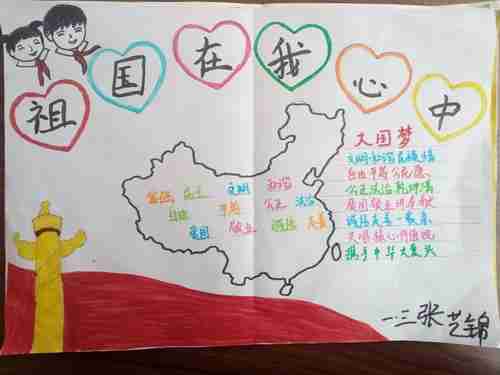 祖国在我心中
富强 民主 文明 和谐
自由 平等 公正 法治
爱国 敬业 诚信 友善
国梦
文明和谐民族情
自由平等公民愿
公正法治
爱国敬业讲奉献
诚信友善一家亲
核心价值观
携手中华大
一.三 张艺锦